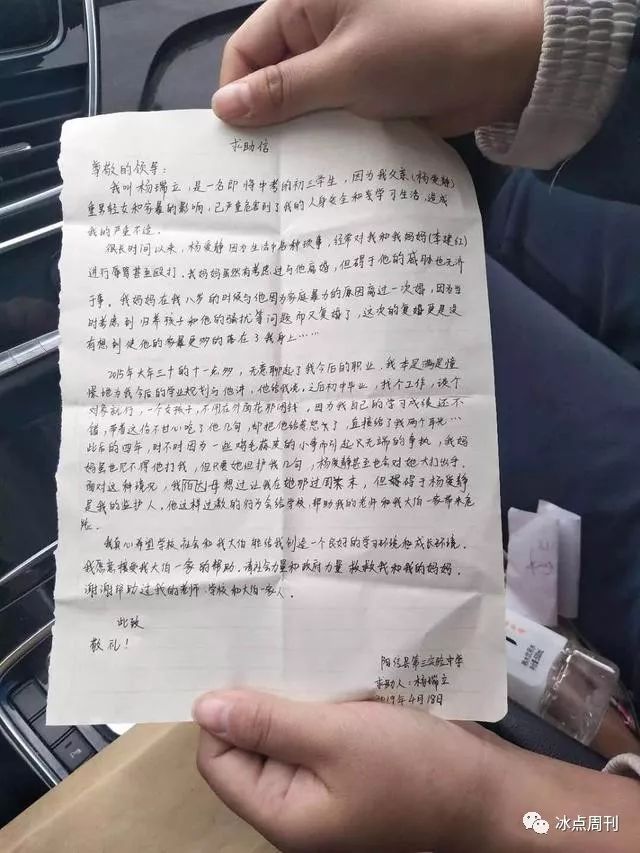 求助信
尊敬的领导：
我叫杨瑞立，是一名即将中考的初三学生，因为我父亲（杨爱静）
重男轻女和家暴的影响，已严重危害到了我的人身安全和我学习生活，造成
我的严重不适。
很长时间以来，杨爱静因为生活中各种琐事，经常对我和我妈妈（李建红）
进行辱骂甚至殴打。我妈妈虽然有考虑过与他离婚，但碍于他的威胁也无济
于事。我妈妈在我八岁的时候与他因为家庭暴力的原因离过一次婚，因为当
时考虑到归养孩子和他的骚扰等问题而又复婚了，这次的复婚更是没
有想到使他的家暴更多的落在了我身上……
2015年大年三十的十一点多，无意聊起了我今后的职业，我本是满是憧
憬地为我今后的学业规划与他讲，他给我说，之后初中毕业，找个工作，谈个
对象就行，一个女孩子，不用在外面花那闲钱。因为我自己的学习成绩还不
错，带着这份不甘心吃了他几句，却把他给惹怒了，直接给了我两个耳光……
此后的四年，时不时因为一些鸡毛蒜皮的小事而引起父无端的争执，我妈
妈虽也见不得他打我，但只要她袒护我几句，杨爱静甚至也会对她大打出手。
面对这种情况，我伯父母想过让我在她那过周末，但碍于杨爱静
是我的监护人，他这样过激的行为会给学校，帮助我的老师和我大伯一家带来危
险。
我真心希望学校社会和我大伯能给我创造一个良好的学习环境和成长环境。
我愿意接受我大伯一家的帮助。请社会力量和政府力量救救我和我的妈妈。
谢谢帮助过我的老师、学校和大伯一家人。
此致
敬礼！
阳信县第三实验中学
求助人：杨瑞立
2019年4月18日
冰点周刊